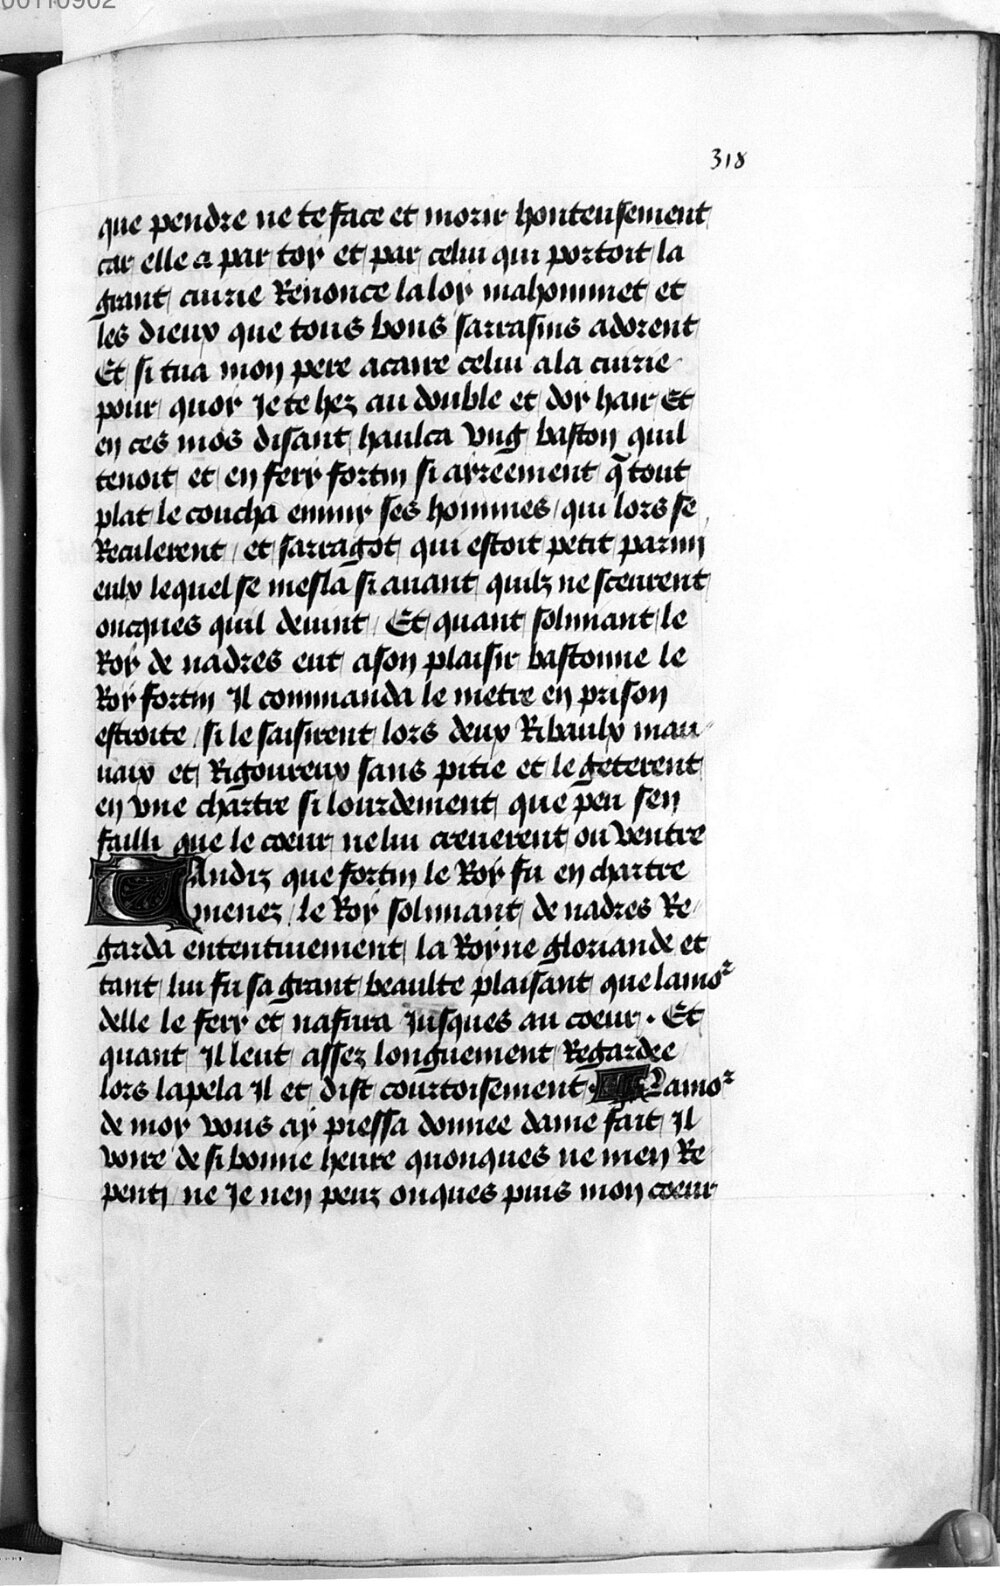 318
que pendre ne te face et morir honteusement
car elle a par toy et par celui qui portoit la
grant cuirie Renonce la loy mahommet et
les dieux que tous bons sarrasins adorent
Et si tua mon pere acaire celui a la cuirie
pour quoy Je te hez au double et doy hair Et
en ces mos disant haulca vng baston quil
tenoit et en fery fortin si ayreement q̃ tout
plat le coucha emmy ses hommes / qui lors se
Reculerent / et sarragot qui estoit petit parmy
eulx lequel se mesla si auant quilz ne sceurent
oncques quil deuint / Et quant solimant le
Roy de nadres eut a son plaisir bastonne le
Roy fortin Il commanda le metre en prison
estroite / si le saisirent lors deux Ribaulx mau
uaix et Rigoureux sans pitie et le geterent
en vne chartre si lourdement que peu sen
failli que le coeur ne lui creuerent ou ventre
Tandiz que fortin le Roy fu en chartre
menez / le Roy solimant de nadres Re
garda ententiuement la Royne gloriande et
tant lui fu sa grant beaulte plaisant que lamor
delle le fery et nafura Jusques au coeur . Et
quant Il leut assez longuement Regardee
lors lapela Il et dist courtoisement . Lamor
de moy vous ay piessa donnee dame fait Il
voire de si bonne heure quonques ne men Re
penti ne Je nen peuz onques puis mon coeur